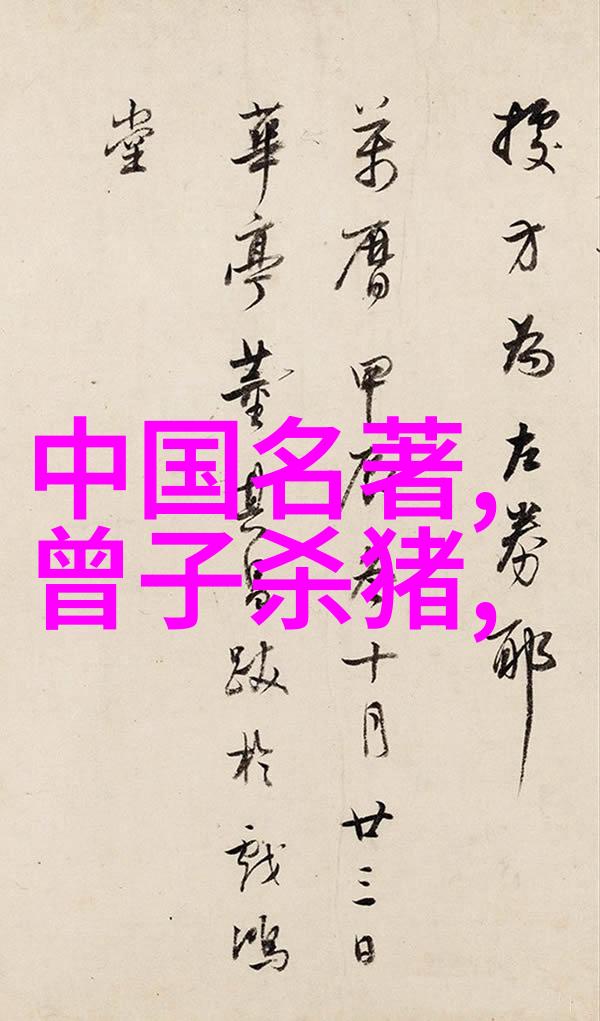 中国名著,
曾子杀猪,
方為左券耶
萬曆甲辰冬十月廿三日
華亭董其昌跋於戲鴻
堂